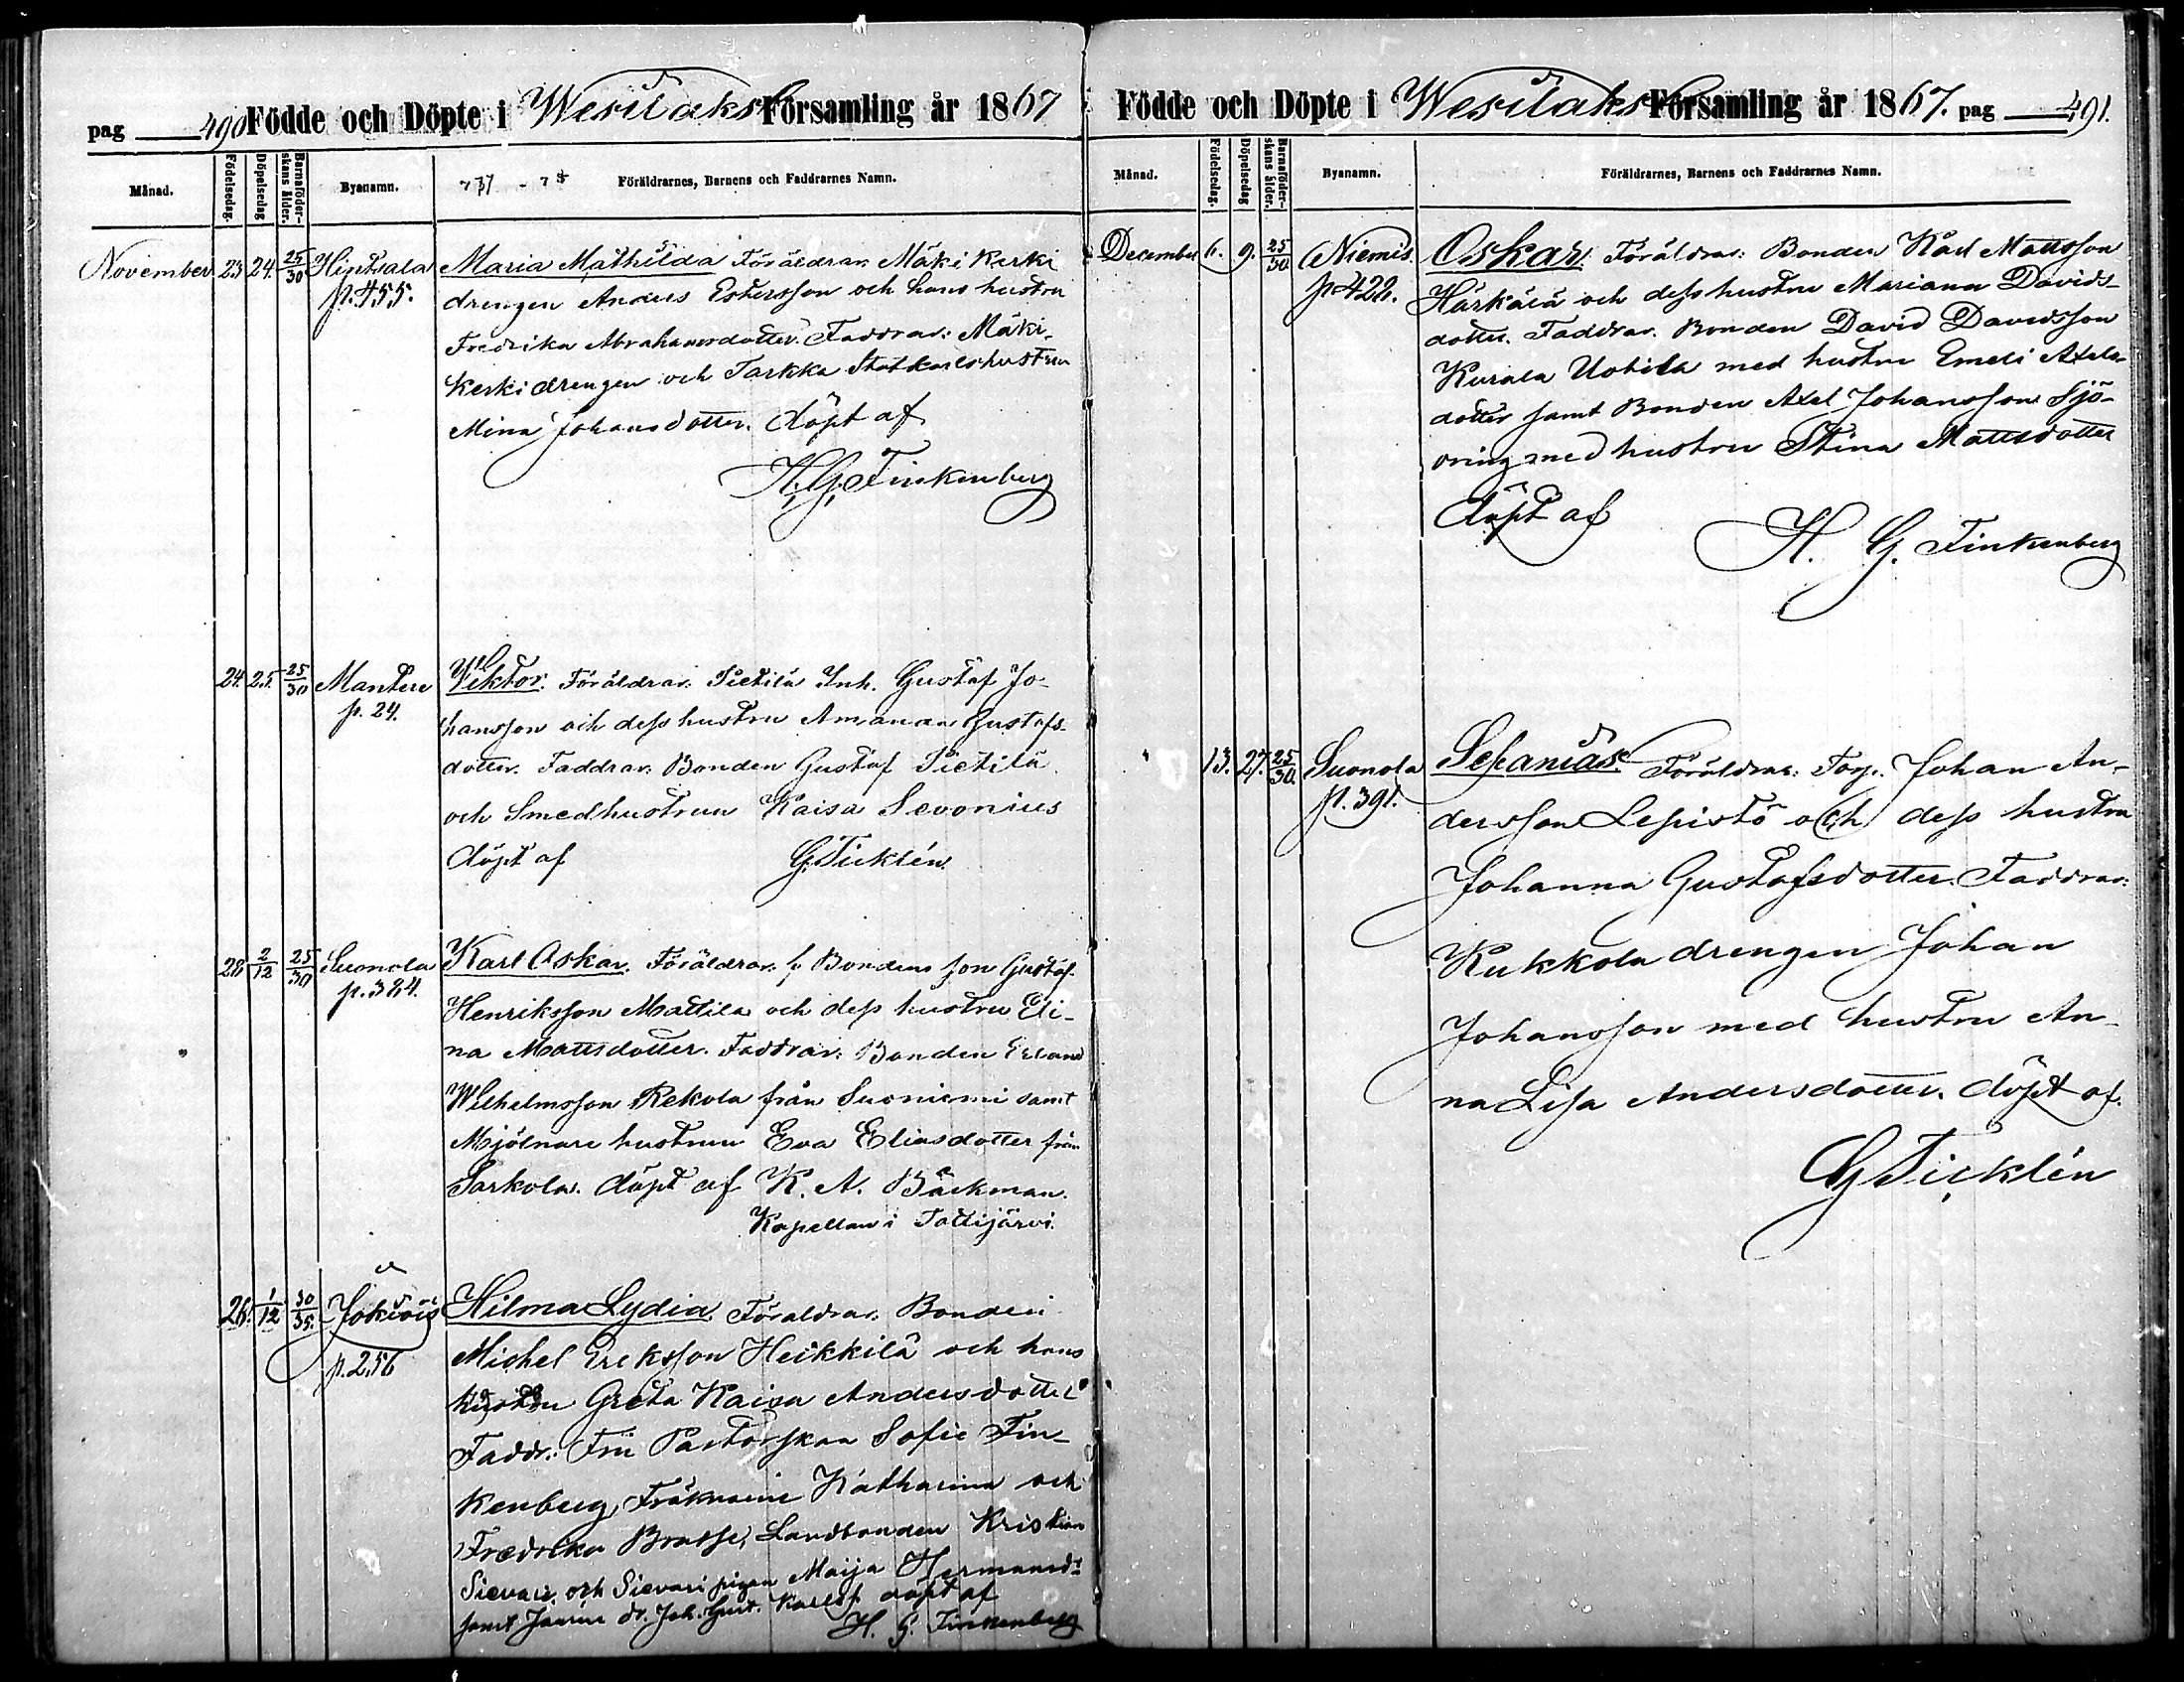 pag 490 Födde och Döpte i Wesilaks Församling år 1867
Månad. Födelsedag. Döpelsedag Barnaföderskans ålder. Byanamn. Föräldrarnes, Barnens och Faddrarnes Namn.
November 23. 24. 25/30 Hinsala Maria Mathilda Föräldrar: Mäki Kerki
p. 455. drengen Anders Estersson och hans hustru
Fredrika Abrahamsdotter. Faddrar: Mäki-
Kerki drengen och Tarkka Statkarlshustrun
Mina Johansdotter. döpt af
H. G. Finkenberg
24. 25. 25/30 Mantere Viktor. Föräldrar: Pietilä Inh. Gustaf Jo-
p. 24. hansson och dess hustru Amanda Gustafs-
dotter. Faddrar: Bonden Gustaf Pietilä
och Smedhustrun Kaisa Sevonius
döpt af G. Ticklén.
28 2/12 25/30 Suonola Karl Oskar. Föräldrar: Bondens son Gustaf
p. 384. Henriksson Mattila och dess hustru Eli-
na Mattsdotter. Faddrar: Bonden Erland
Wilhelmsson Rekola från Suoniemi samt
Mjölnare hustrun Eva Eliasdotter från
Sarkola. döpt af K. A. Bäckman.
Kapellan i Tottijärvi.
26. 1/12 30/35. Jokiois Hilma Lydia. Föräldrar: Bonden
p. 256 Michel Ericksson Heikkilä och hans
hustru Greta Kaisa Andersdotter
Faddr.: Fru Pastorskan Sofie Fin-
kenberg, Fröknarne Katharina och
Fredrika Brasse, Landbonden Kristian
Sievari och Sievari pigan Maija Hermansd:r
samt dr. Joh. Gust. Karlss. döpt af
H. G. Finkenberg
Födde och Döpte i Wesilaks Församling år 1867. pag 491.
Månad. Födelsedag. Döpelsedag Barnaföderskans ålder. Byanamn. Föräldrarnes, Barnens och Faddrarnes Namn.
December 6. 9. 25/30 Niemis. Oskar. Föräldrar: Bonden Karl Mattsson
p. 422. Härkälä och dess hustru Mariana Davids-
dotter. Faddrar: Bonden David Davidsson
Kurala Uotila med hustru Emeli Axels-
dotter samt Bonden Axel Johansson Sjö-
oring med hustru Stina Mattsdotter
döpt af
H. G. Finkenberg
" 13. 27. 25/30. Suonola Sefanias. Föräldrar: Torp. Johan An-
p. 391. dersson Lepistö och dess hustru
Johanna Gustafsdotter. Faddrar:
Kukkola drengen Johan
Johansson med hustru An-
na Lisa Andersdotter. döpt af.
G. Ticklén